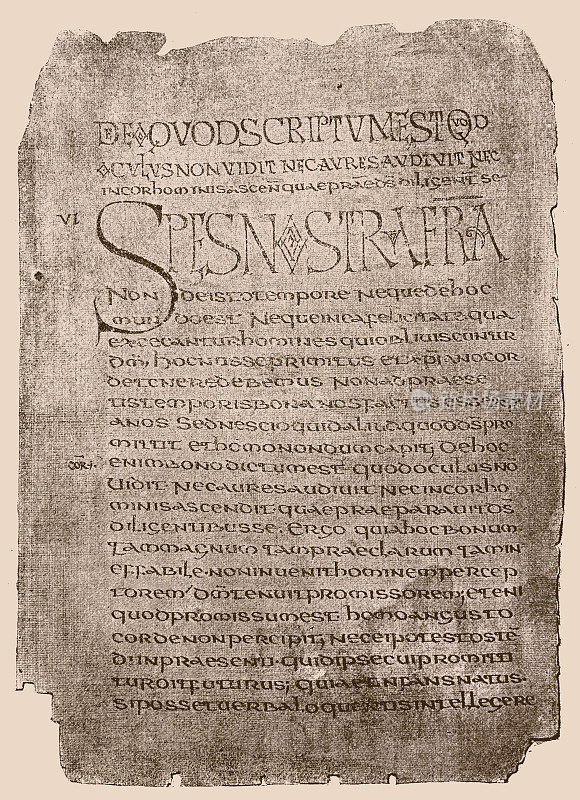 DE EO QVOD SCRIPTVM EST QVOD
OCVLUS NON VIDIT NEC AVRES AVDIVIT NEC
IN COR hominis ascen quae praep ds diligent se
VI SPES NOSTRA FRA
NON de isto tempore neque de hoc
mundo est neque in ea felicitate qua
excecantur homines qui obliviscuntur
dm, hoc nosse primitus et xpiano cor
de tenere debemus non ad praese
tis temporis bona nos factos
anos sed nescio quid aliud quod ds pro
mittit et homo nondum capit, de hoc
enim bono dictum est quod oculus no
vidit nec aures audiuit nec in cor ho
minis ascendit quae praeparavit ds
diligentibus se. ergo quia hoc bonum
tam magnum tam praeclarum tam in
effabile non invenit hominem percep
torem, dm tenuit promissorem, et eni
quod promissum est homo angusto
corde non percipit, nec ei potest oste
di in praesenti quid ipse cui promitti
tur sit futurus, quia et infans natus
si posset verba loquentis intellegere